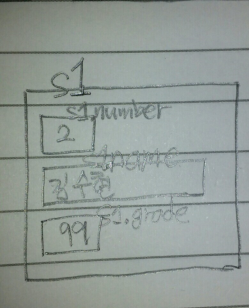 s1
s1.number
2
s1name
s1.grade
99